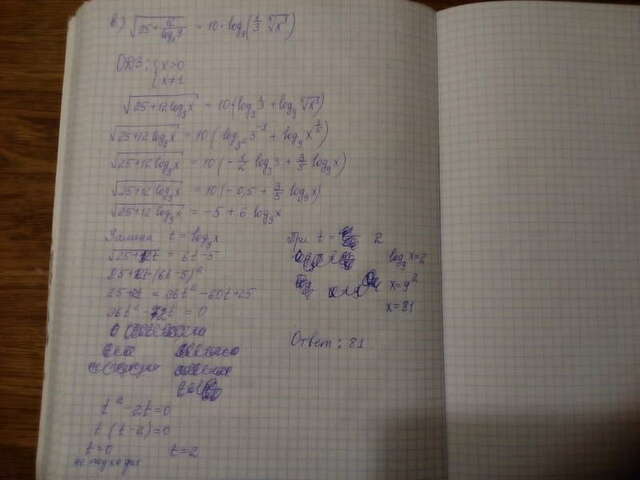 в) √(25 + 12/log_x 9) = 10 · log_9(1/3 ⁵√x³)
ОДЗ: { x>0
x≠1
√(25+12log_9 x) = 10(log_9 1/3 + log_9 ⁵√x³)
√(25+12log_9 x) = 10(log_{3²} 3^{-1} + log_9 x^{3/5})
√(25+12log_9 x) = 10(-1/2 log_3 3 + 3/5 log_9 x)
√(25+12log_9 x) = 10(-0,5 + 3/5 log_9 x)
√(25+12log_9 x) = -5 + 6 log_9 x
Замена t = log_9 x
√(25+12t) = 6t-5
25+12t=(6t-5)²
25+12t = 36t² -60t+25
36t² -72t = 0
t² -2t=0
t(t-2)=0
t=0 t=2
не подходит
При t = 2
log_9 x=2
x=9²
x=81
Ответ: 81